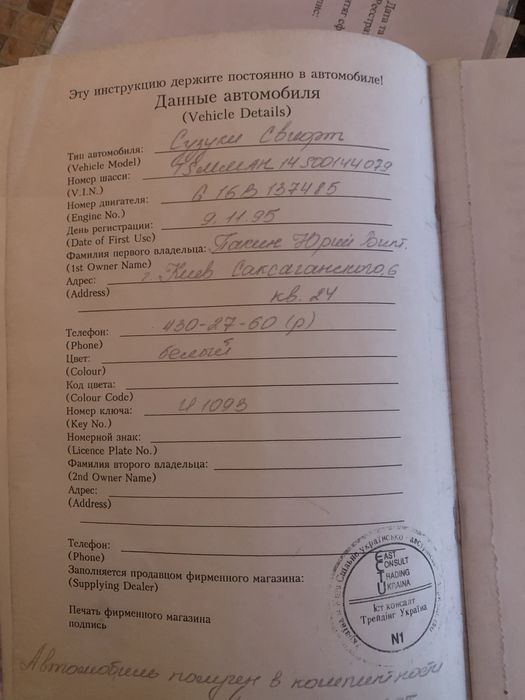 Дата та
Эту инструкцию держите постоянно в автомобиле!
Данные автомобиля
(Vehicle Details)
Тип автомобиля: Сузуки Свифт
(Vehicle Model)
Номер шасси: 14500144079
(V.I.N.)
Номер двигателя: G 16B 137485
(Engine No.)
День регистрации: 9.11.95
(Date of First Use)
Фамилия первого владельца: Юрий Викт.
(1st Owner Name)
Адрес: г. Киев Саксаганского, 6
(Address)
кв. 24
Телефон: 430-27-60 (р)
(Phone)
Цвет: белый
(Colour)
Код цвета:
(Colour Code)
Номер ключа: И 1093
(Key No.)
Номерной знак:
(Licence Plate No.)
Фамилия второго владельца:
(2nd Owner Name)
Адрес:
(Address)
Телефон:
(Phone)
Заполняется продавцом фирменного магазина:
(Supplying Dealer)
Печать фирменного магазина
подпись
EAST
CONSULT
TRADING
UKRAINA
Іст консалт
Трейдінг Україна
N1
Автомобиль получен в комплектности